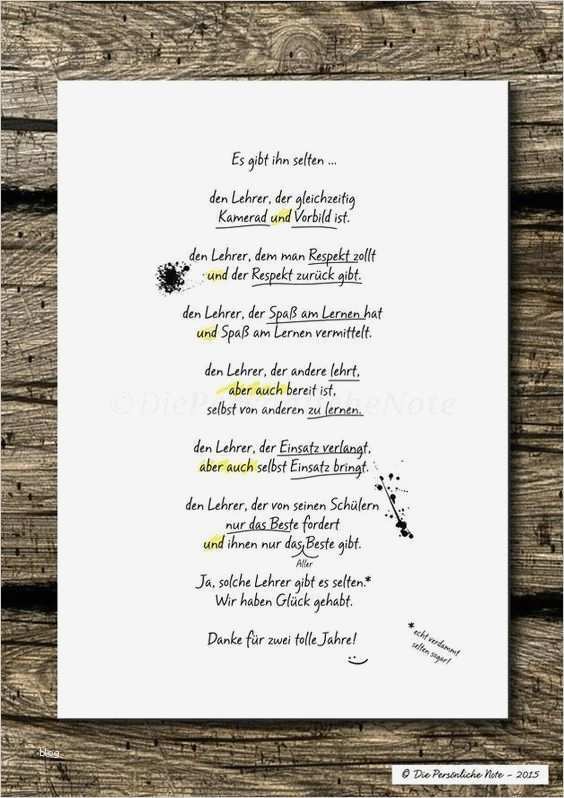 Es gibt ihn selten ...
den Lehrer, der gleichzeitig
Kamerad und Vorbild ist.
den Lehrer, dem man Respekt zollt
und der Respekt zurück gibt.
den Lehrer, der Spaß am Lernen hat
und Spaß am Lernen vermittelt.
den Lehrer, der andere lehrt,
aber auch bereit ist,
©DiePersönlicheNote
selbst von anderen zu lernen.
den Lehrer, der Einsatz verlangt,
aber auch selbst Einsatz bringt.
den Lehrer, der von seinen Schülern
nur das Beste fordert
und ihnen nur das Beste gibt.
Aller
Ja, solche Lehrer gibt es selten.*
Wir haben Glück gehabt.
Danke für zwei tolle Jahre!
* echt verdammt
selten sogar!
blog
© Die Persönliche Note - 2015